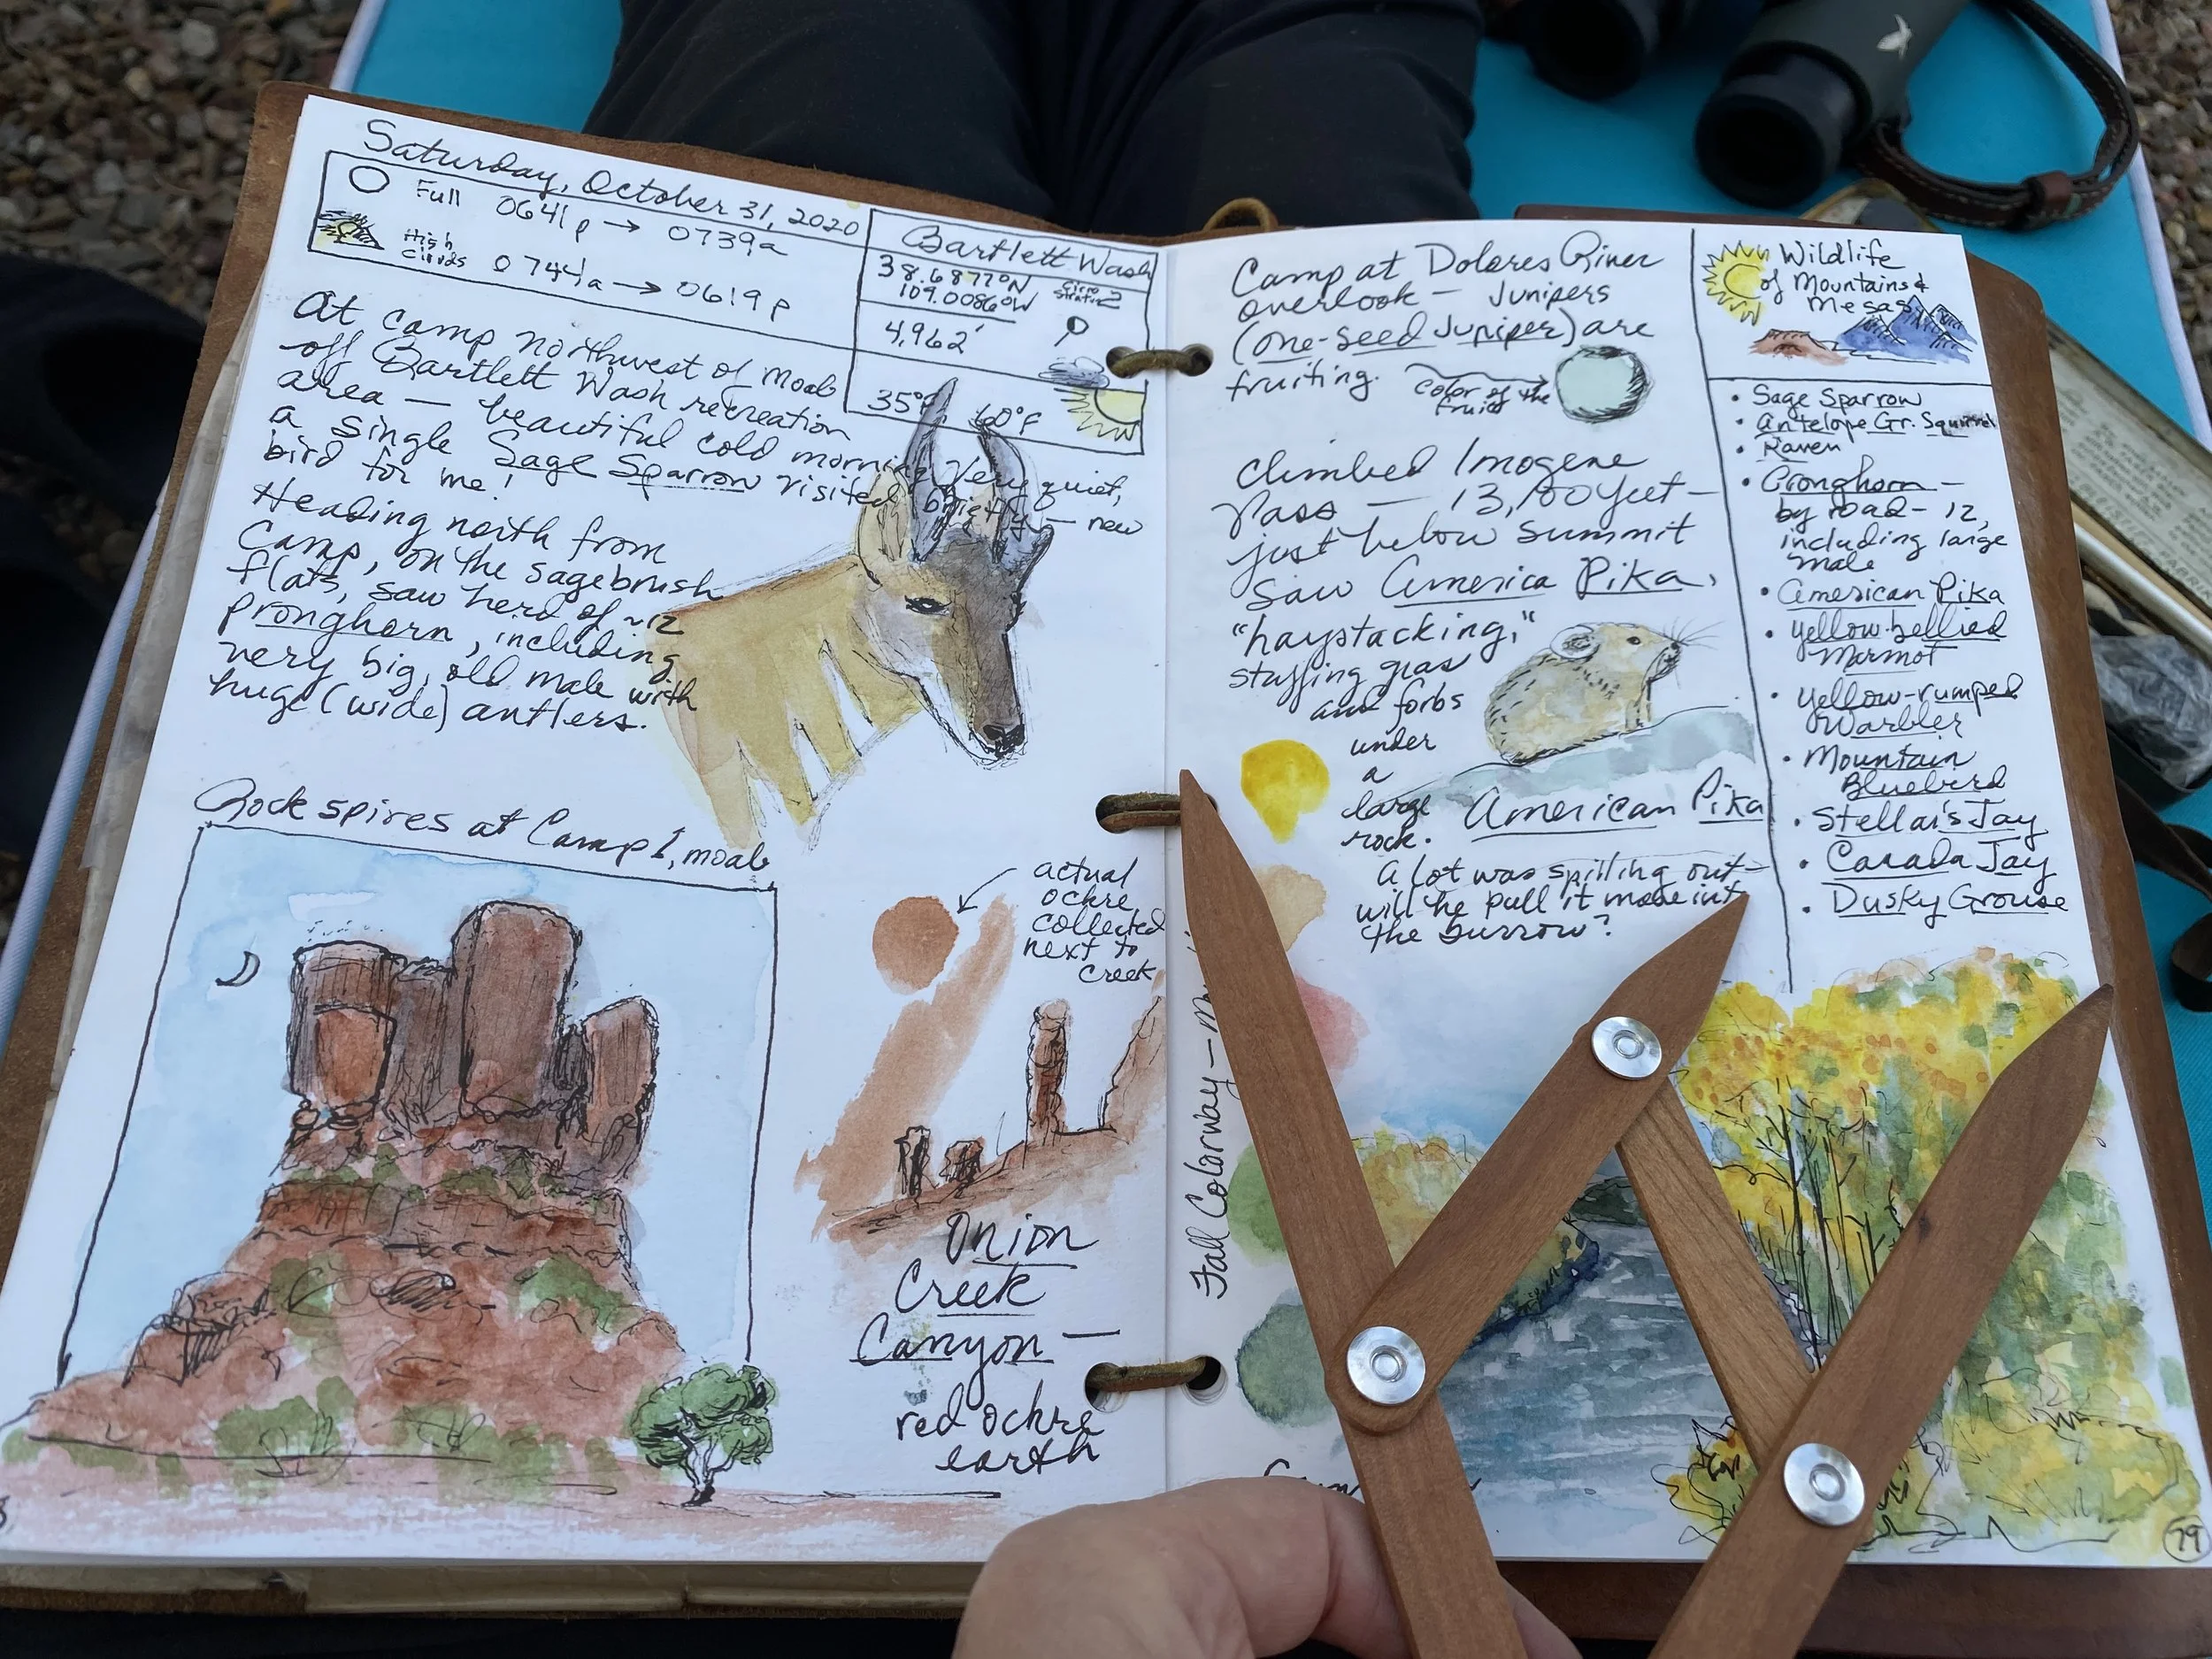 Saturday, October 31, 2020
Full 0641p → 0739a
High
Clouds 0744a → 0619p
Bartlett Wash
38.6877°N
109.0086°W
Cirro
stratus 2
4,962'
35°F 60°F
At camp northwest of Moab
off Bartlett Wash recreation
area — beautiful cold morning. Very quiet,
a single Sage Sparrow visited briefly — new
bird for me!
Heading north from
Camp, on the sagebrush
flats, saw herd of ~12
pronghorn, including
very big, old male with
huge (wide) antlers.
Rock spires at Camp 1, moab
actual
ochre
collected
next to
creek
Onion
Creek
Canyon —
red ochre
earth
Camp at Dolores River
overlook — Junipers
(one-seed Juniper) are
fruiting.
color of the
fruit
Climbed Imogene
Pass — 13,100 feet —
just below summit
Saw America Pika,
"haystacking,"
stuffing gras
and forbs
under
a
large
rock.
American Pika
A lot was spilling out —
will he pull it more int
the burrow?
Fall Colorway —
Wildlife
of Mountains &
Mesas
• Sage Sparrow
• Antelope Gr. Squirrel
• Raven
• Pronghorn —
by road — 12,
including large
male
• American Pika
• Yellow-bellied
Marmot
• Yellow-rumped
Warbler
• Mountain
Bluebird
• Stellar's Jay
• Canada Jay
• Dusky Grouse
79